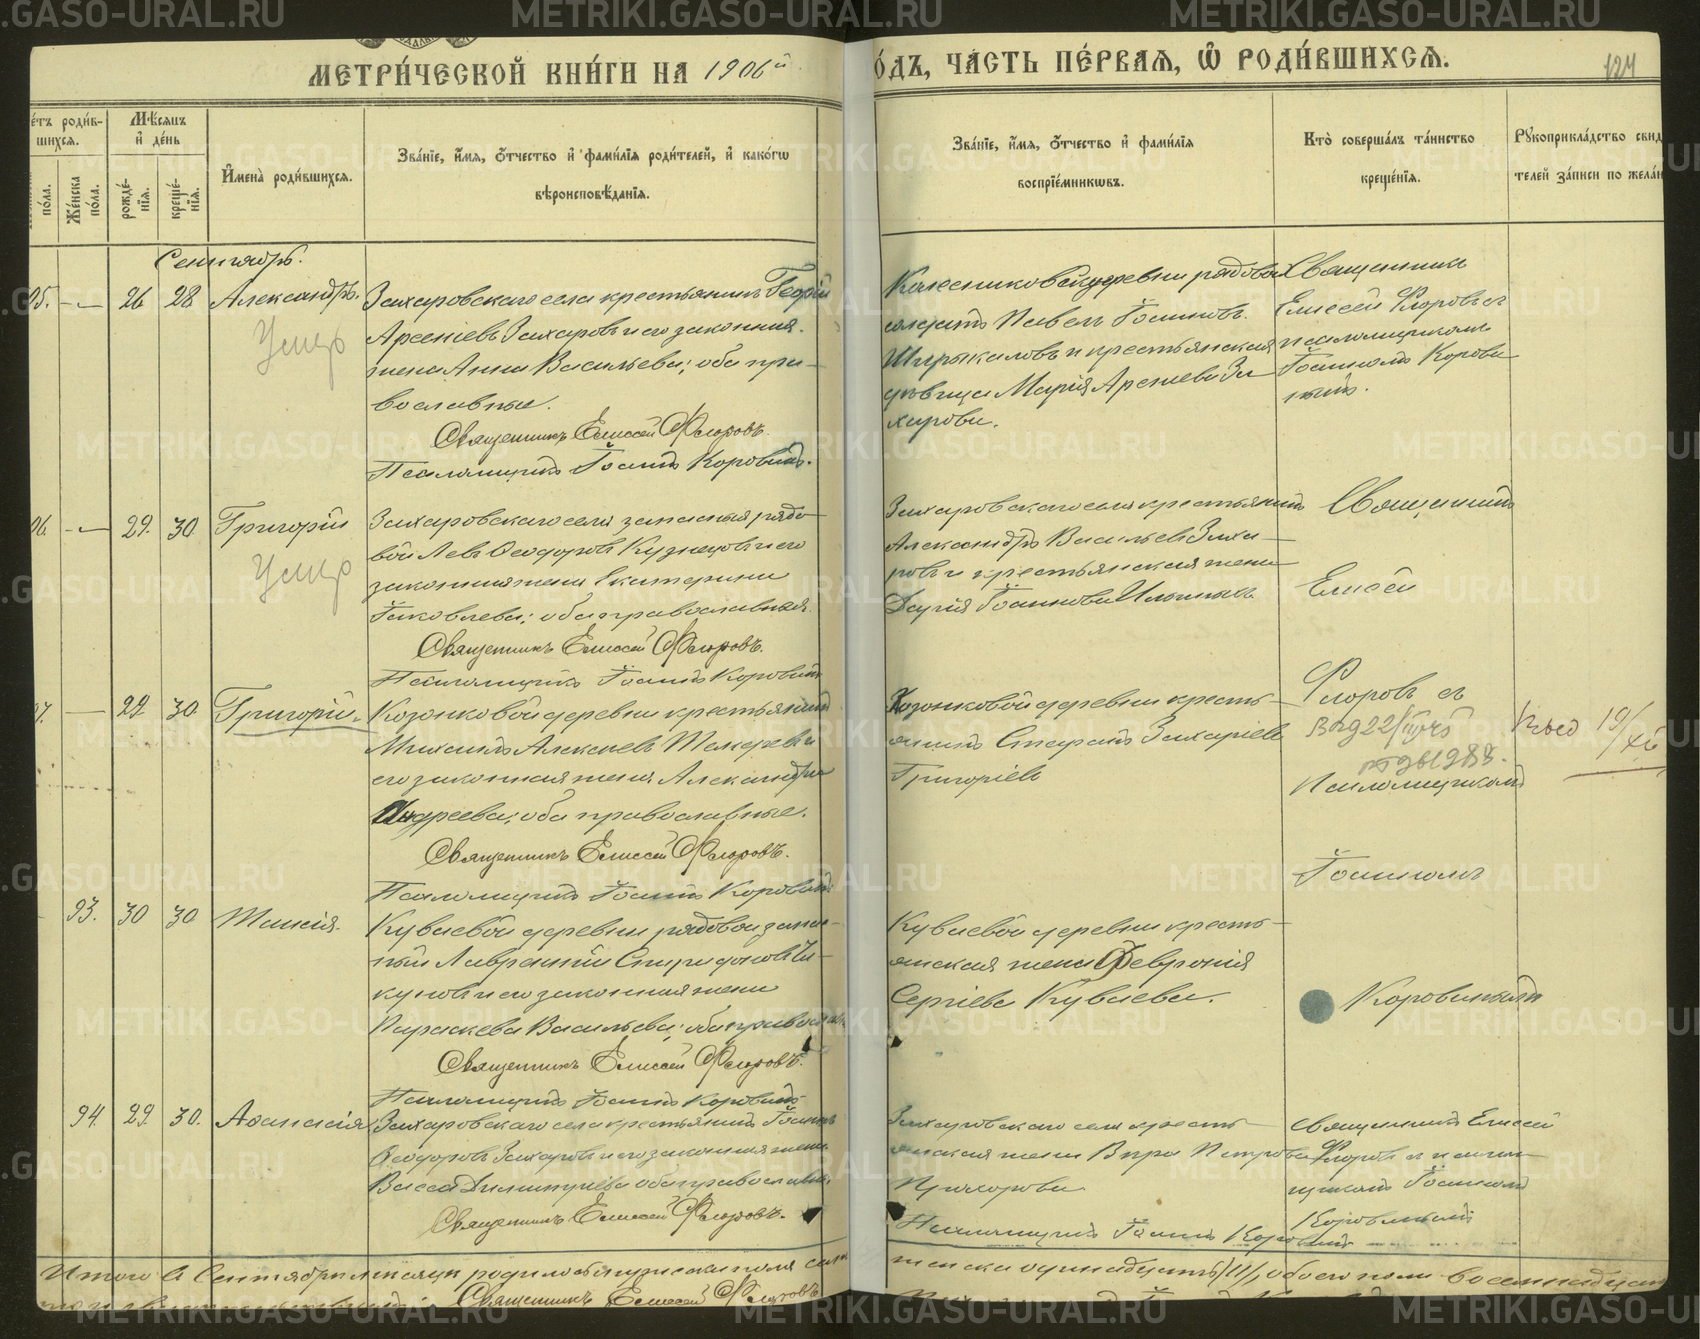 МЕТРИ́ЧЕСКОЙ КНИ́ГИ НА 1906й
ОДЪ, ЧА́СТЬ ПЕ́РВАЯ, Ѿ РОДИ́ВШИХСЯ.
124
е́тъ роди́в-
шихся.
Мѣ́сяцъ
и де́нь
по́ла.
Же́нска
по́ла.
рожде́-
нія.
креще́-
нія.
Имена̀ роди́вшихся.
Зва́ніе, и́мя, ѻ́тчество и фами́лія роди́телей, и како́гѡ
вѣроисповѣ́данія.
Зва́ніе, и́мя, ѻ́тчество и фами́лія
воспріе́мникѡвъ.
Кто̀ соверша́лъ та́инство
креще́нія.
Рукоприкла́дство свид
телей за́писи по жела́н
Сентябрь.
05. 26 28 Александръ.
Умер
Захаровскаго села крестьянинъ Георгій
Арсеніевъ Захаровъ и его законная
жена Анна Васильева; оба пра-
вославные.
Священникъ Елисей Флоровъ.
Псаломщикъ Іоаннъ Коровинъ.
Колесниковой деревни рядовой
солдатъ Павелъ Іоанновъ
Ширыкаловъ и крестьянская
вдовица Марія Арсеніева За-
харова.
Священникъ
Елисей Флоровъ съ
псаломщикомъ
Іоанномъ Корови-
нымъ.
06. 29. 30 Григорій
Умер
Захаровскаго села запасный рядо-
вой Левъ Ѳеодоровъ Кузнецовъ и его
законная жена Екатерина
Іаковлева; оба православныя.
Священникъ Елисей Флоровъ.
Псаломщикъ Іоаннъ Коровинъ
Захаровскаго села крестьянинъ
Александръ Васильевъ Заха-
ровъ и крестьянская жена
Дарія Іоаннова
Священникъ
Елисей
07. 29 30 Григорій
Козонковой деревни крестьянинъ
Михаилъ Алексіевъ и
его законная жена Александра
Андреева; оба православные.
Священникъ Елисей Флоровъ.
Псаломщикъ Іоаннъ Коровинъ
Козонковой деревни кресть-
янинъ Стефанъ Захаріевъ
Григорьевъ
Флоровъ съ
псаломщикомъ
Іоанномъ
93. 30 30 Таисія.
Куваевой деревни рядовой запас-
ный Лаврентій Спиридоновъ Чи-
куновъ и его законная жена
Параскева Васильева; оба правосл
Священникъ Елисей Флоровъ.
Псаломщикъ Іоаннъ Коровинъ
Куваевой деревни кресть-
янская жена Февронія
Сергіева Куваева.
Коровинымъ
94. 29. 30. Аѳанасія
Захаровскаго села крестьянинъ Іоаннъ
Ѳеодоровъ Захаровъ и его законная жена
Васса Димитріева оба православн.
Священникъ Елисей Флоровъ.
Захаровскаго села кресть-
янская жена Вѣра Петрова
Прохорова
Псаломщикъ Іоаннъ Коровинъ
Священникъ Елисей
Флоровъ съ псалом-
щикомъ Іоанномъ
Коровинымъ
Итого въ Сентябрѣ мѣсяцѣ родилось мужскаго пола
женска одиннадцать /11/, обоего пола восемнадцать
Священникъ Елисей Флоровъ
METRIKI.GASO-URAL.RU